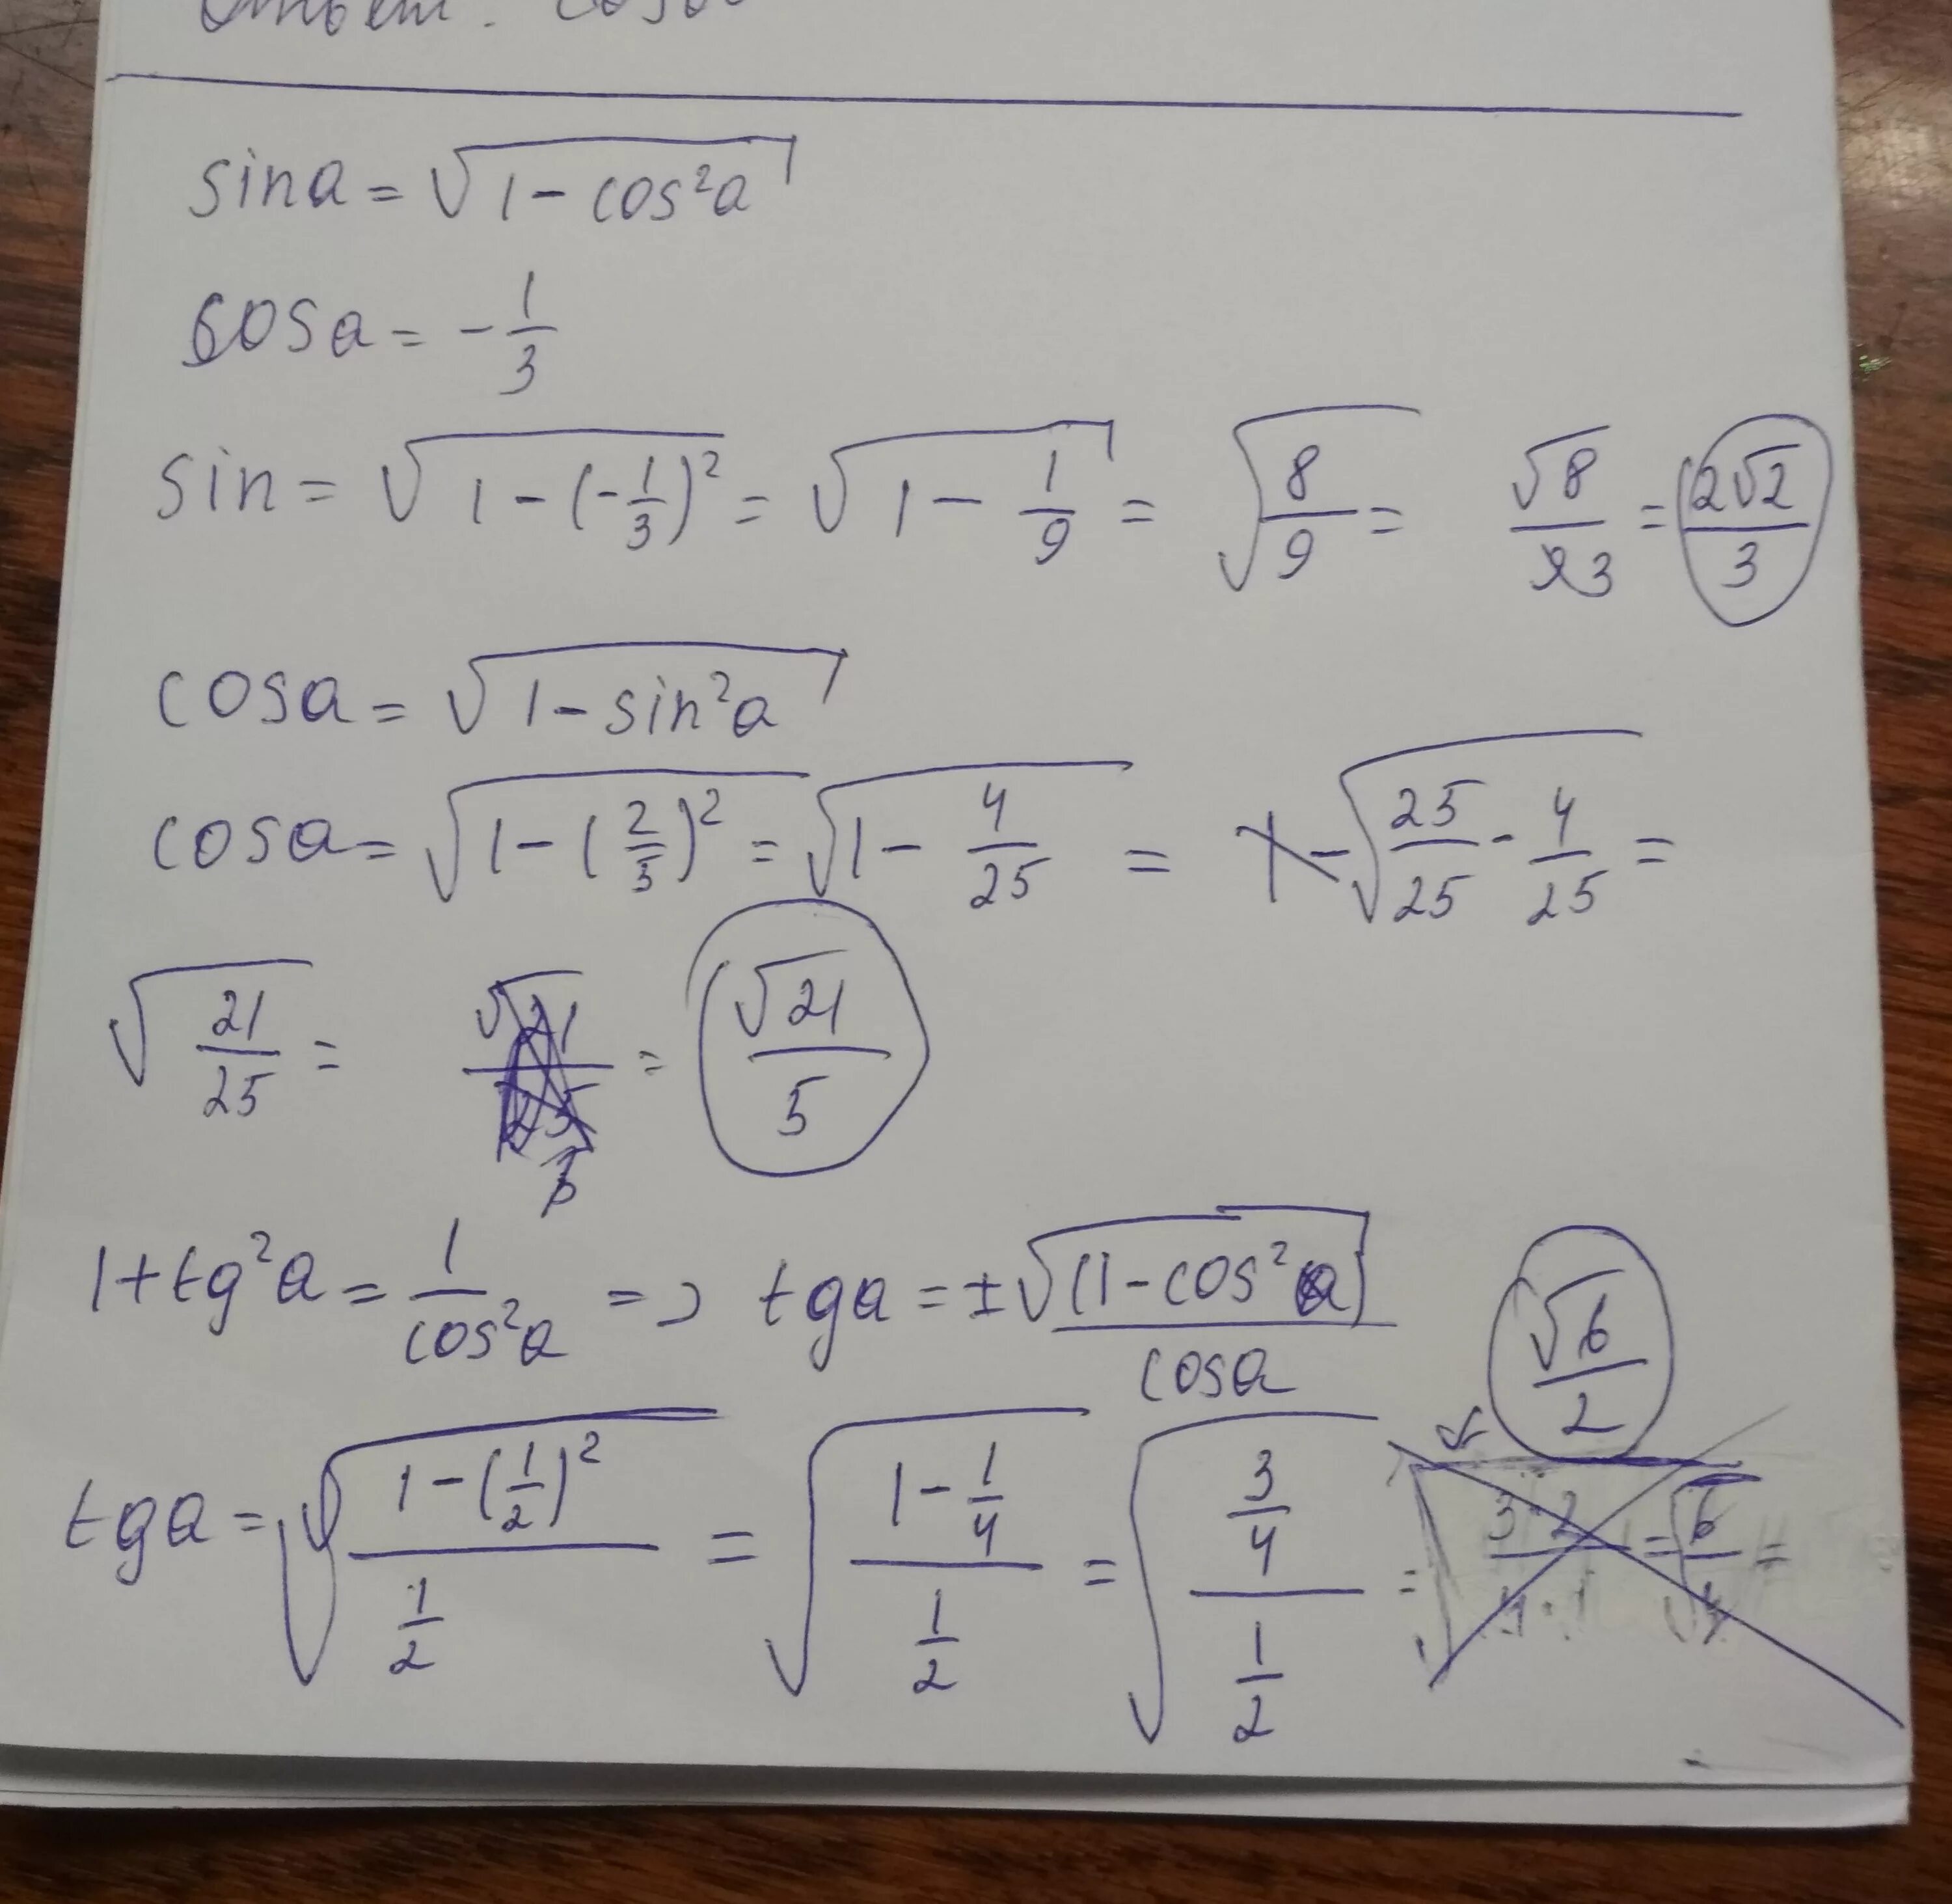 sina = √(1 - cos²a)
cosa = - 1/3
sin = √(1 - (-1/3)²) = √(1 - 1/9) = √(8/9) = √8/3 = 2√2/3
cosa = √(1 - sin²a)
cosa = √(1 - (2/5)²) = √(1 - 4/25) = √(25/25 - 4/25) =
√(21/25) = = √21/5
1 + tg²a = 1/cos²a => tga = ±√(1 - cos²a)/cosa
√6/2
tga = √((1 - (1/2)²)/(1/2)) = √((1 - 1/4)/(1/2)) = √((3/4)/(1/2)) = √(3·2/4·1) = √6/√4 =